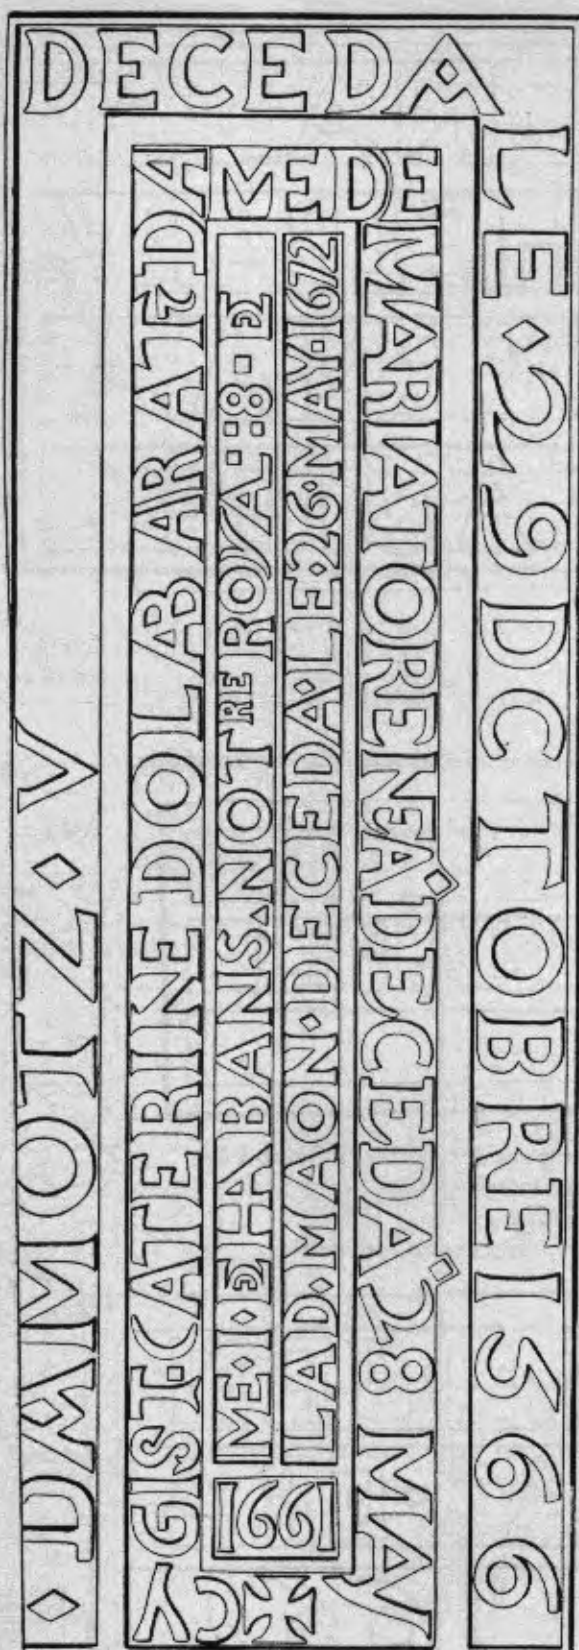 · DAMOTZ · V
DECEDA
LE · 29 DCTOBRE 1566
✠ CY
GIST·CATERINE DOLABARATZ DA
ME DE
MARIATORENEA· DECEDA· 28 MAY
ME·I·E·HABANS·NOTRE ROYA::8·E
LAD·MAON·DECEDA·LE·26·MAY·1672
1661